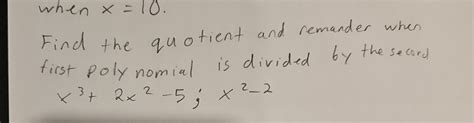 when x = 10.
Find the quotient and remander when
first polynomial is divided by the second
x³ + 2x² - 5 ; x² - 2